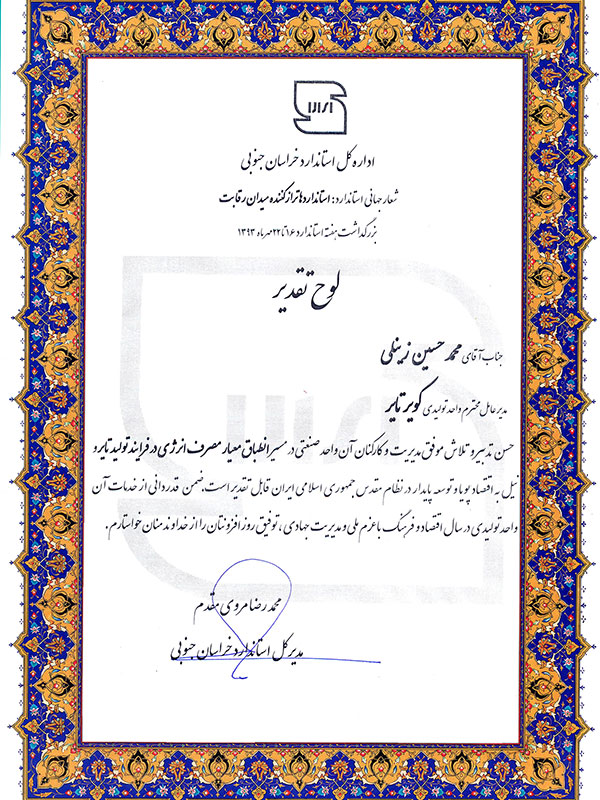 اداره کل استاندارد خراسان جنوبی
شعار جهانی استاندارد: استانداردها تراز کننده میدان رقابت
بزرگداشت هفته استاندارد ۱۶ تا ۲۲ مهر ماه ۱۳۹۳
لوح تقدیر
جناب آقای محمد حسین زینلی
مدیر عامل محترم واحد تولیدی کویر تایر
حسن تدبیر و تلاش موفق مدیریت و کارکنان آن واحد صنعتی در مسیر انطباق معیار مصرف انرژی در فرایند تولید تایر و
نیل به اقتصاد پویا و توسعه پایدار در نظام مقدس جمهوری اسلامی ایران قابل تقدیر است. ضمن قدردانی از خدمات آن
واحد تولیدی در سال اقتصاد و فرهنگ با عزم ملی و مدیریت جهادی، توفیق روز افزونتان را از خداوند منان خواستارم.
محمد رضا مروی مقدم
مدیر کل استاندارد خراسان جنوبی